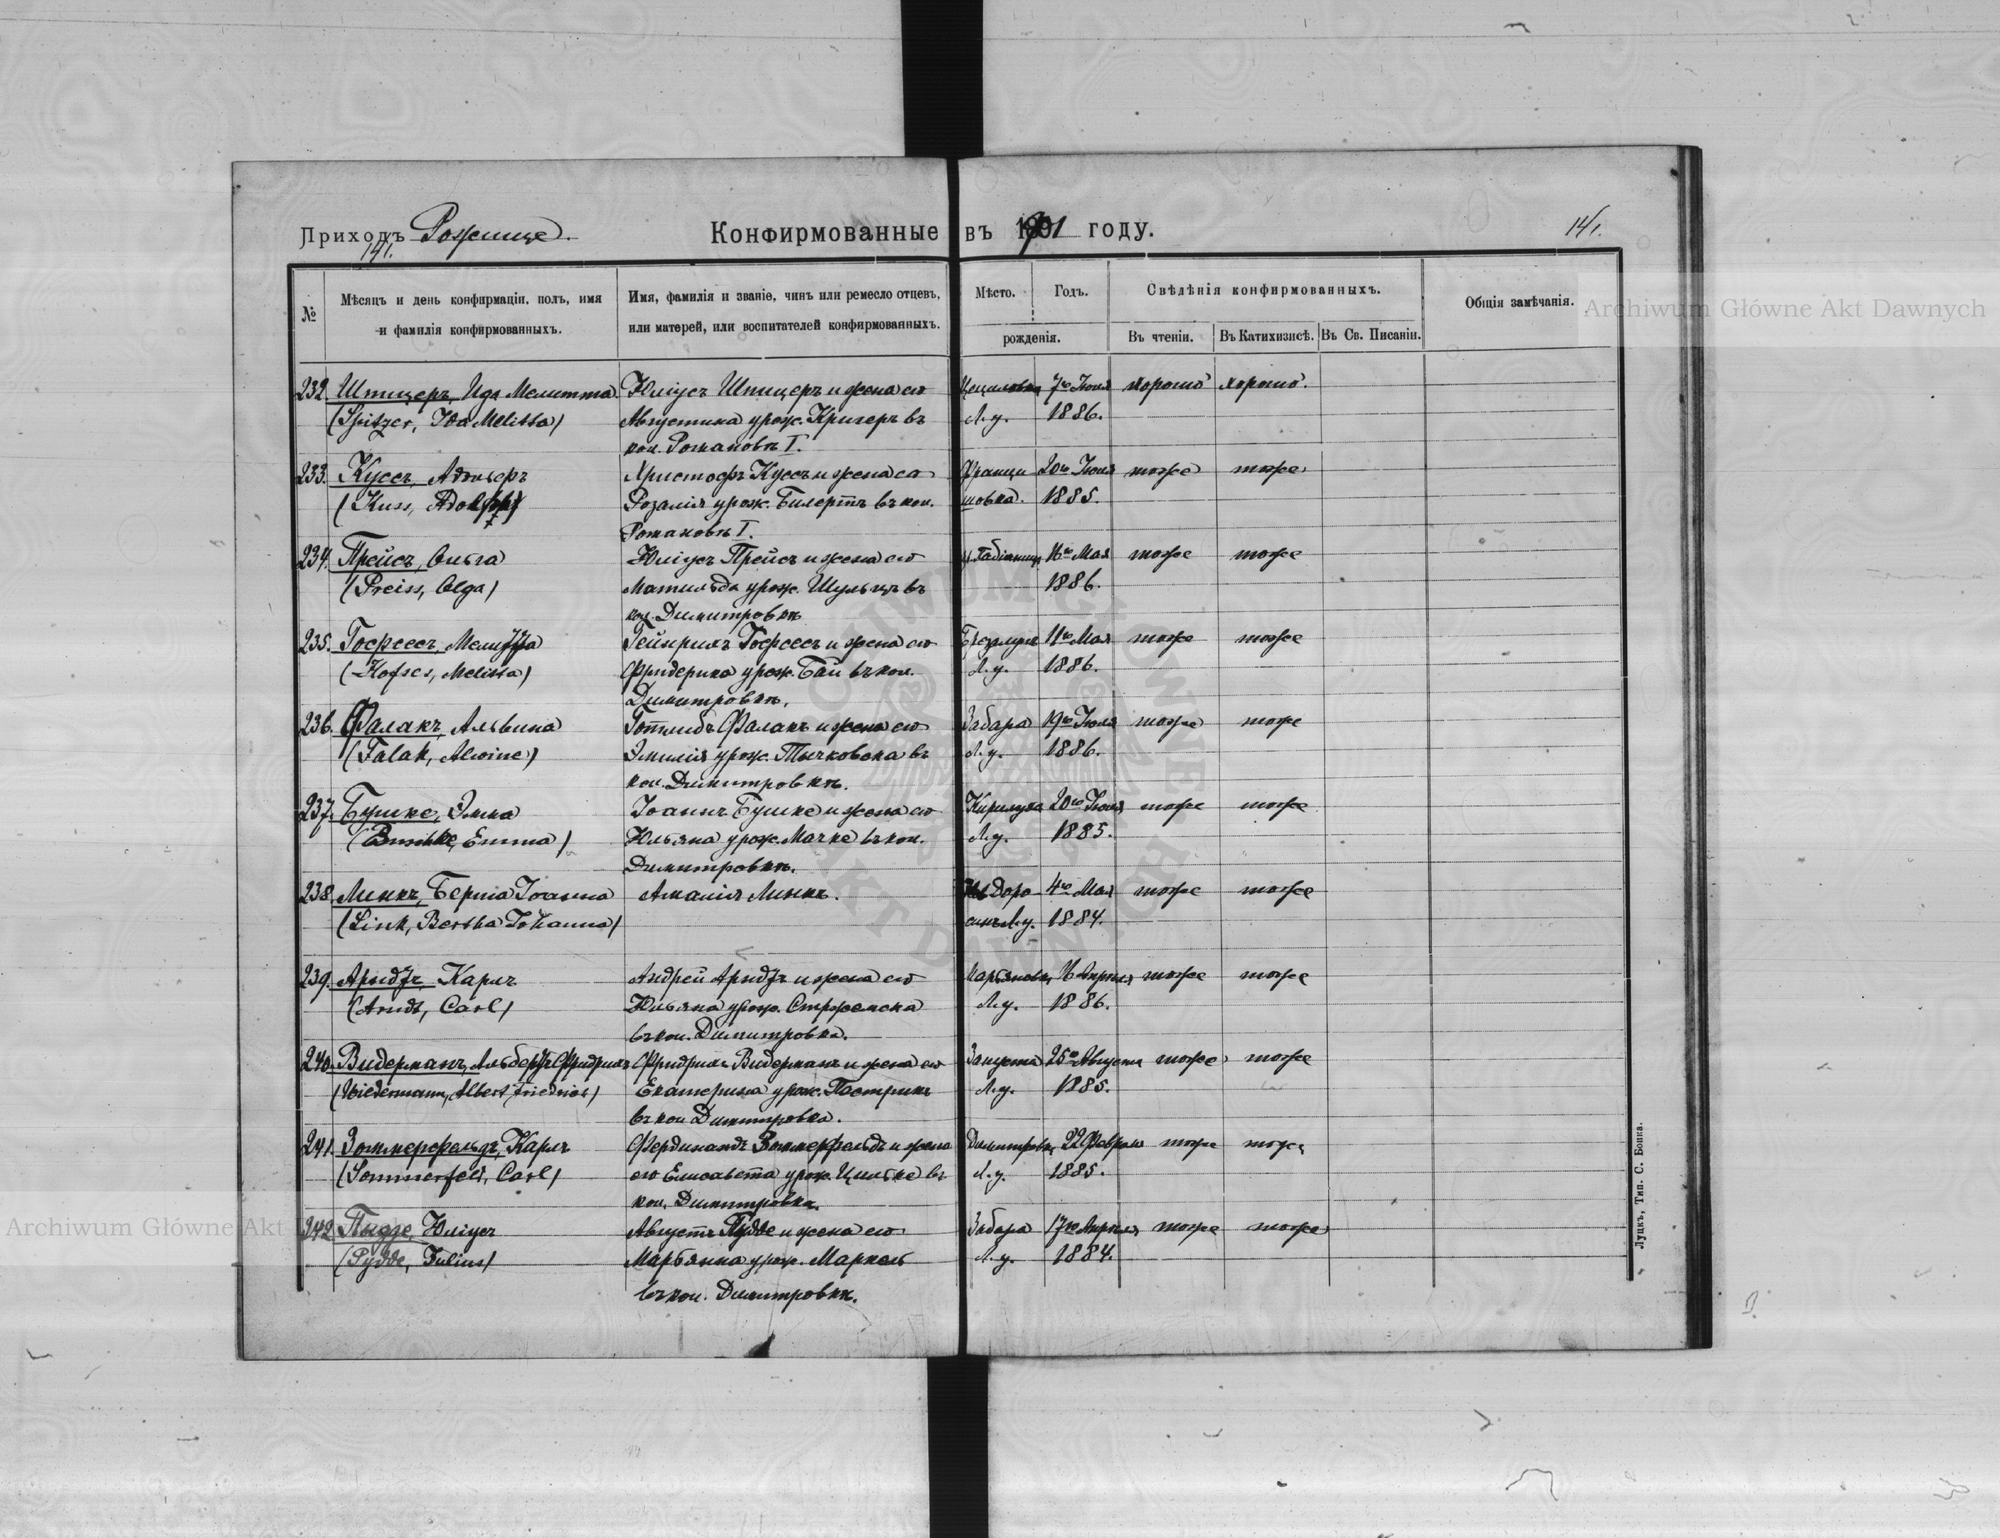 Приходъ Рожище.
Конфирмованные въ 1901 году.
141.
141.
№
Мѣсяцъ и день конфирмаціи, полъ, имя
и фамилія конфирмованныхъ.
Имя, фамилія и званіе, чинъ или ремесло отцевъ,
или матерей, или воспитателей конфирмованныхъ.
Мѣсто.
Годъ.
рожденія.
Свѣлѣнія конфирмованныхъ.
Въ чтеніи.
Въ Катихизисѣ.
Въ Св. Писаніи.
Общія замѣчанія.
Archiwum Główne Akt Dawnych
232. Шпицеръ, Ида Мелитта. Юліусъ Шпицеръ и жена его 7го Іюля хорошо хорошо.
(Spitzer, Ida Melitta) Августина урож. Кригеръ въ Л.у. 1886.
кол. Романовкѣ I.
233. Куссъ, Адольфъ Христофъ Куссъ и жена его Франци 20го Іюля тоже тоже
(Kuss, Adolph) Розалія урож. Билертъ въ кол. шовка. 1885.
Романовкѣ I.
234. Прейсъ, Ольга Юліусъ Прейсъ и жена его 16го Мая тоже тоже
(Preiss, Olga) Матильда урож. Шульцъ въ 1886.
кол. Димитровкѣ
235. Гофсесъ, Мелитта Гейнрихъ Гофсесъ и жена его 11го Мая тоже тоже
(Hofses, Melitta) Фридерика урож. Бай въ кол. Л.у. 1886.
Димитровкѣ.
236. Фалакъ, Альвина Готлибъ Фалакъ и жена его Забара 19го Іюля тоже тоже
(Falak, Alwine) Эмилія урож. Тычковска въ Л.у. 1886.
кол. Димитровкѣ.
237. Бушке, Эмма Іоаннъ Бушке и жена его 20го Іюля тоже тоже
(Buschke, Emma) Юльяна урож. Мачке въ кол. Л.у. 1885.
Димитровкѣ.
238. Линкъ, Берта Іоанна Амалія Линкъ. 4го Мая тоже тоже
(Link, Bertha Johanna) Л.у. 1884.
239. Арндтъ, Карлъ Андрей Арндтъ и жена его Марьяновка 16 Апрѣля тоже тоже
(Arndt, Carl) Юльяна урож. Л.у. 1886.
въ кол. Димитровка.
240. Видерманъ, Альбертъ Фридрихъ Фридрихъ Видерманъ и жена его Запуста 25го Августа тоже тоже
(Wiedermann, Albert Friedrich) Екатерина урож. Л.у. 1885.
въ кол Димитровка.
241. Зоммерфельдъ, Карлъ Фердинандъ Зоммерфельдъ и жена Димитровка 22 Февраля тоже тоже
(Sommerfeld, Carl) его Елисавета урож. Цилке въ Л.у. 1885.
кол. Димитровка.
242. Пыдде, Юліусъ Августъ Пыдде и жена его Забара 17го Апрѣля тоже тоже
(Pydde, Julius) Марьянна урож. Маркель Л.у. 1884.
въ кол. Димитровкѣ.
Луцкъ, Тип. С. Бонка.
Archiwum Główne Akt Dawnych